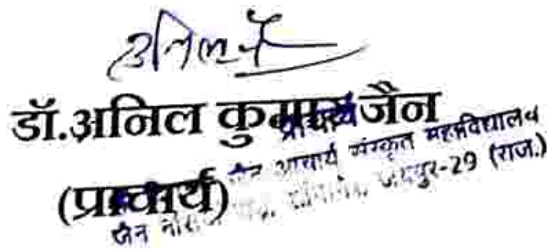 डॉ.अनिल कुमार जैन
(प्राचार्य)
प्राचार्य
जैन आचार्य संस्कृत महाविद्यालय
जैन जयपुर-29 (राज.)